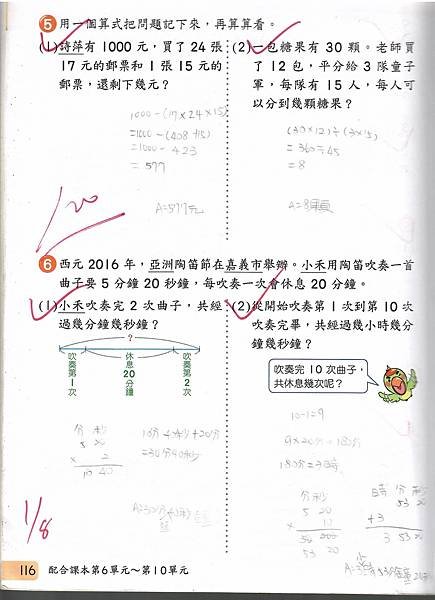 5 用一個算式把問題記下來,再算算看。
(1)詩萍有 1000 元,買了 24 張
17 元的郵票和 1 張 15 元的
郵票,還剩下幾元?
1000-(17×24+15)
=1000-(408+15)
=1000-423
=577
A=577元
(2)一包糖果有 30 顆。老師買
了 12 包,平分給 3 隊童子
軍,每隊有 15 人,每人可
以分到幾顆糖果?
(30×12)÷(3×15)
=360÷45
=8
A=8顆
1/20
6 西元 2016 年,亞洲陶笛節在嘉義市舉辦。小禾用陶笛吹奏一首
曲子要 5 分鐘 20 秒,每吹奏一次會休息 20 分鐘。
(1)小禾吹奏完 2 次曲子,共經
過幾分鐘幾秒鐘?
?
吹奏第1次
休息20分鐘
吹奏第2次
分 秒
5 20
× 2
10 40
10分40秒+20分
=30分40秒
(2)從開始吹奏第 1 次到第 10 次
吹奏完畢,共經過幾小時幾分
鐘幾秒鐘?
吹奏完 10 次曲子,
共休息幾次呢?
10-1=9
9×20=180分
180分=3時
分 秒
5 20
× 10
50 200
53 20
時 分 秒
53 20
+3
3 53 20
1/8
116 配合課本第6單元~第10單元